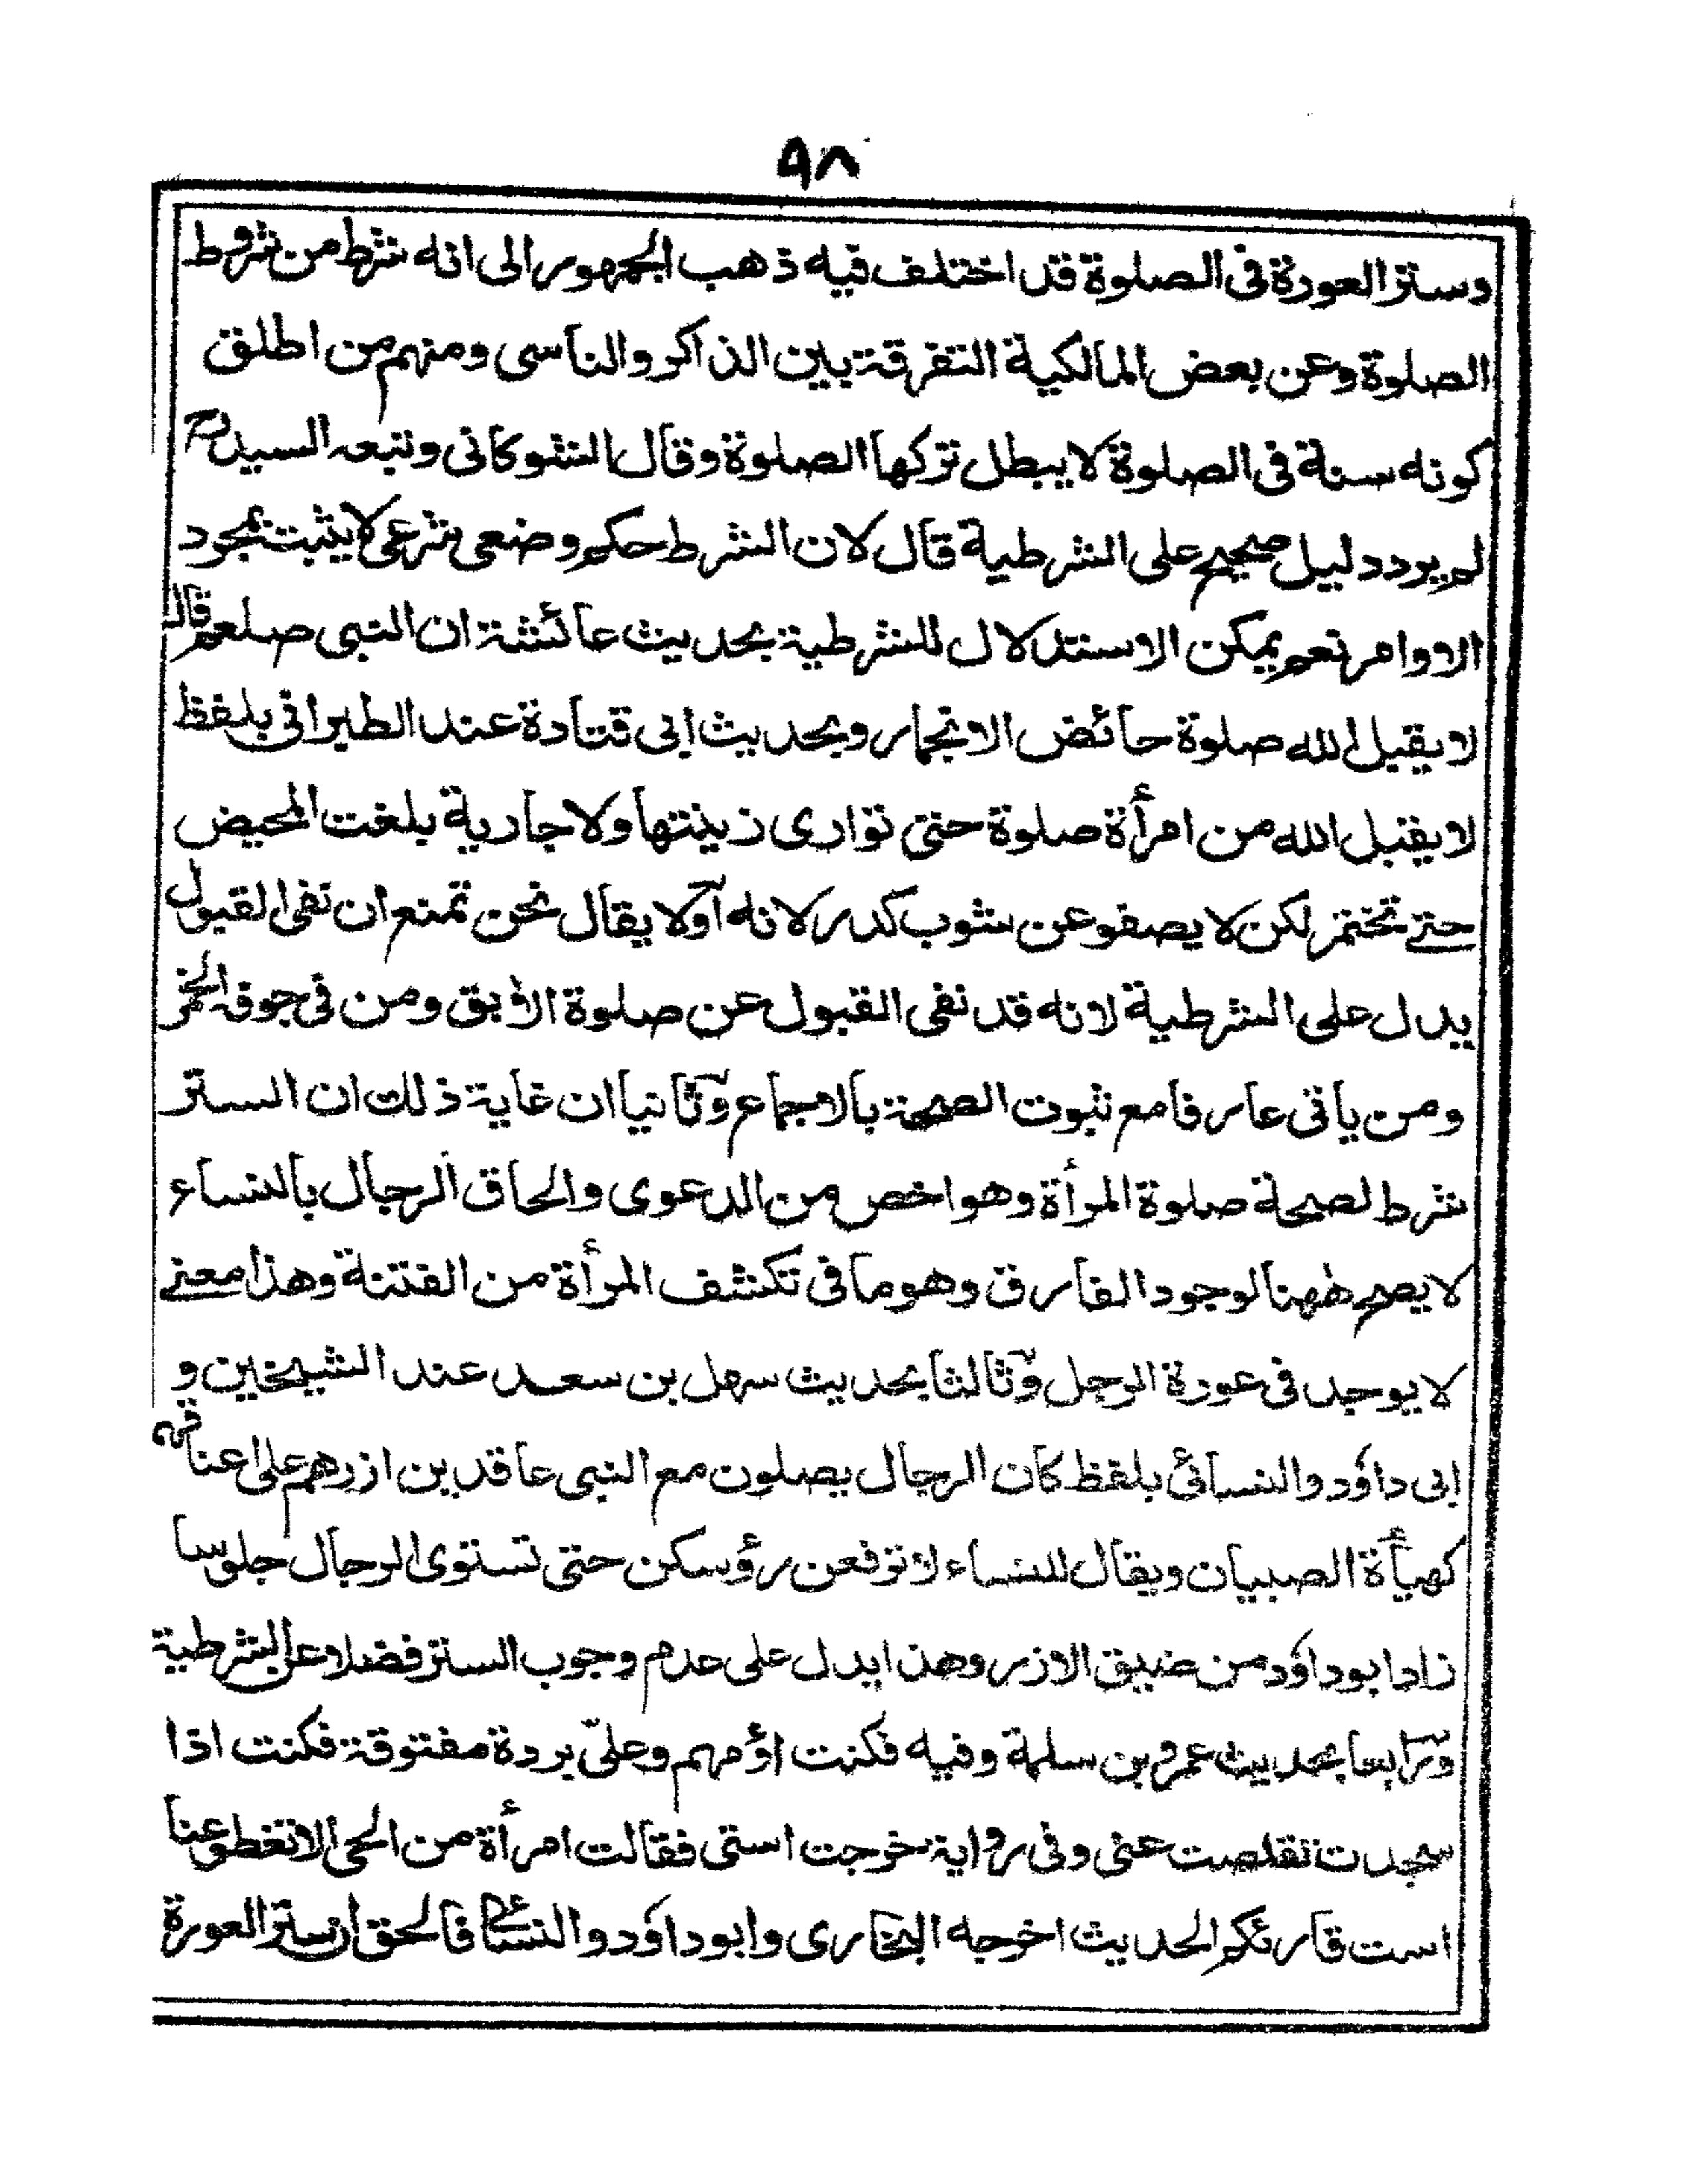 ٩٨
وستر العورة فى الصلوة قد اختلف فيه ذهب الجمهور الى انه شرط من شروط
الصلوة وعن بعض المالكية التفرقة بين الذاكر والناسى ومنهم من اطلق
كونه سنة فى الصلوة لا يبطل تركها الصلوة وقال الشوكانى وتبعه السيد رح
لم يرد دليل صحيح على الشرطية قال لان الشرط حكم وضعى شرعى لا يثبت بمجرد
الاوامر نعم يمكن الاستدلال للشرطية بحديث عائشة ان النبى صلعم قال
لا يقبل الله صلوة حائض الا بخمار وبحديث ابى قتادة عند الطبرانى بلفظ
لا يقبل الله من امرأة صلوة حتى توارى زينتها ولا جارية بلغت المحيض
حتى تختمر لكن لا يصفو عن شوب كدر لانه اولا يقال نحن نمنع ان نفى القبول
يدل على الشرطية لانه قد نفى القبول عن صلوة الأبق ومن فى جوفه الخمر
ومن ياتى عارفا مع ثبوت الصحة بالاجماع وثانيا ان غاية ذلك ان الستر
شرط لصحة صلوة المرأة وهو اخص من الدعوى والحاق الرجال بالنساء
لا يصح ههنا لوجود الفارق وهو ما فى تكشف المرأة من الفتنة وهذا معنى
لا يوجد فى عورة الرجل وثالثا بحديث سهل بن سعد عند الشيخين و
ابى داؤد والنسائى بلفظ كان الرجال يصلون مع النبى عاقدين ازرهم على اعناقهم
كهيأة الصبيان ويقال للنساء لا ترفعن رؤسكن حتى تستوى الرجال جلوسا
زاد ابو داؤد من ضيق الازر وهذا يدل على عدم وجوب الستر فضلا عن الشرطية
ورابعا بحديث عمرو بن سلمة وفيه فكنت اؤمهم وعلىّ بردة مفتوقة فكنت اذا
سجدت تقلصت عنى وفى رواية خرجت استى فقالت امرأة من الحى الا تغطو عنا
است قارئكم الحديث اخرجه البخارى وابو داؤد والنسائى فالحق ان ستر العورة